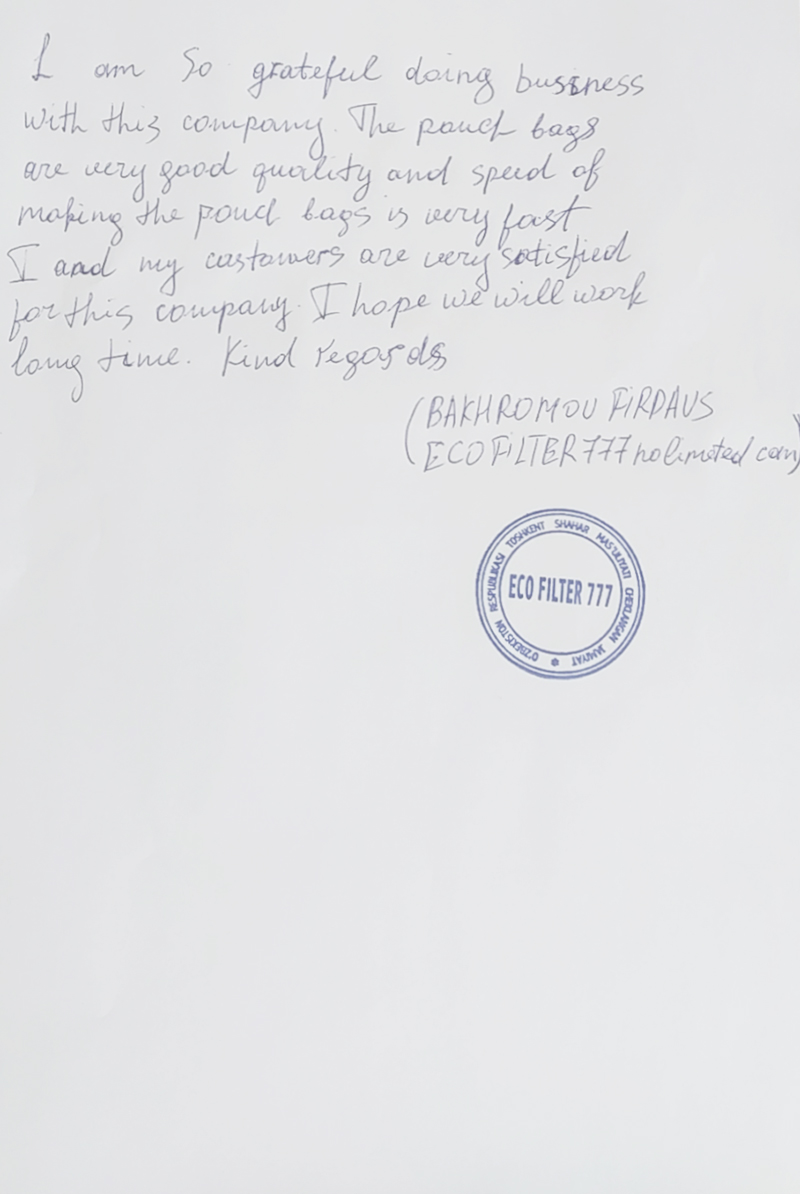 I am so grateful doing business
with this company. The pouch bags
are very good quality and speed of
making the pouch bags is very fast
I and my customers are very satisfied
for this company. I hope we will work
long time. Kind regards
(BAKHROMOV FIRDAVS
ECO FILTER 777 no limeted com)
O'ZBEKISTON RESPUBLIKASI TOSHKENT SHAHAR MAS'ULIYATI CHEKLANGAN JAMIYAT
ECO FILTER 777